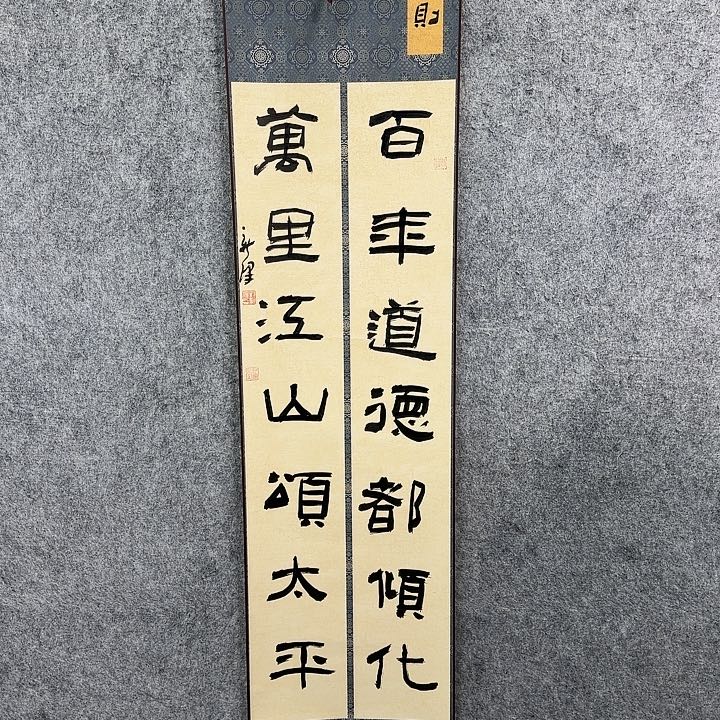 百年道德都傾化
萬里江山頌太平